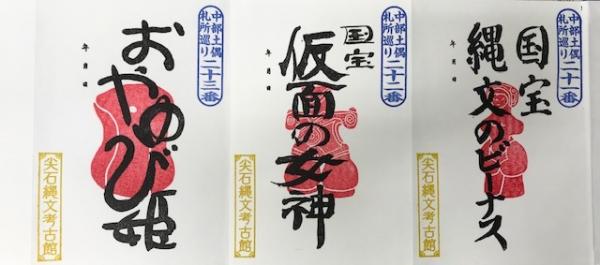 中部土偶
札所巡り
二十一番
国宝
縄文のビーナス
年月日
尖石縄文考古館
中部土偶
札所巡り
二十二番
国宝
仮面の女神
年月日
尖石縄文考古館
中部土偶
札所巡り
二十三番
おやゆび姫
年月日
尖石縄文考古館